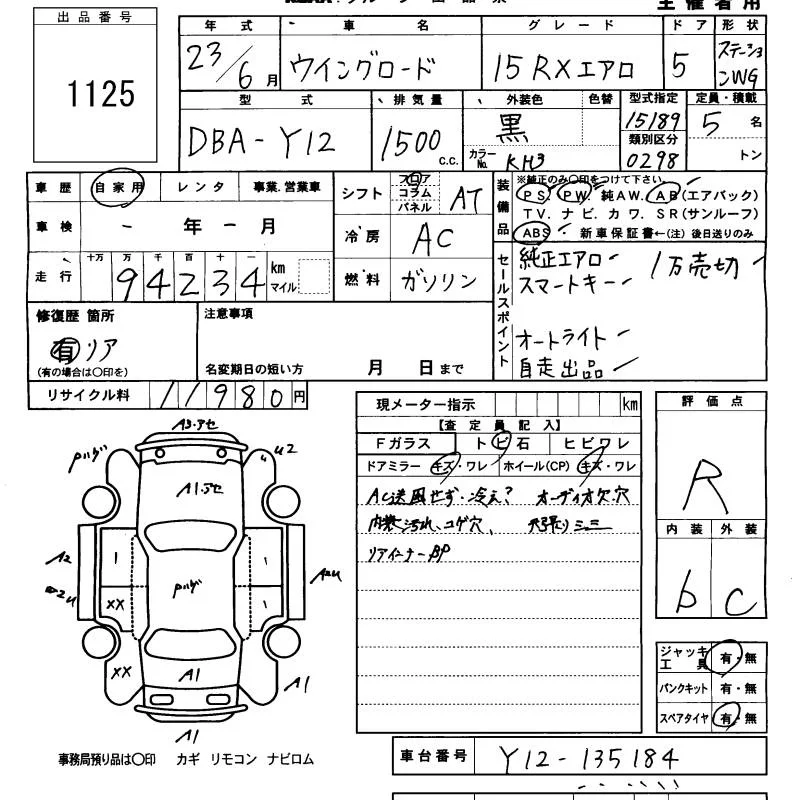 主催者用
出品番号
1125
年式 車名 グレード ドア 形状
23/6月 ウイングロード 15RXエアロ 5 ステーションWG
型式 排気量 外装色 色替 型式指定 定員・積載
DBA-Y12 1500 c.c. 黒 カラーNo. KH3 15189 5 名
類別区分
0298 トン
車歴 自家用 レンタ 事業.営業車
シフト フロア コラム パネル AT
装備品 ※純正のみ〇印をつけて下さい。
PS. PW. 純AW. AB(エアバック)
TV. ナビ. カワ. SR(サンルーフ)
ABS 新車保証書←(注) 後日送りのみ
車検 - 年 - 月
冷房 AC
走行 十万 万 千 百 十 一
94234 km マイル
燃料 ガソリン
セールスポイント
純正エアロ 1万売切
スマートキー
オートライト
自走出品
修復歴 箇所
有 リア
(有の場合は〇印を)
注意事項
名変期日の短い方 月 日まで
リサイクル料 11980円
現メーター指示 km
【査定員記入】
Fガラス トビ石 ヒビワレ
ドアミラー キズ・ワレ ホイール(CP) キズ・ワレ
AC送風せず・冷え? オーディオ欠.穴
内装汚れ、コゲ穴、
評価点
R
内装 外装
b C
ジャッキ工具 有・無
パンクキット 有・無
スペアタイヤ 有・無
A3.アセ
U2
A1.アセ
A2
XX
XX
A1
A1
A1
事務局預り品は〇印 カギ リモコン ナビロム
車台番号 Y12-135184